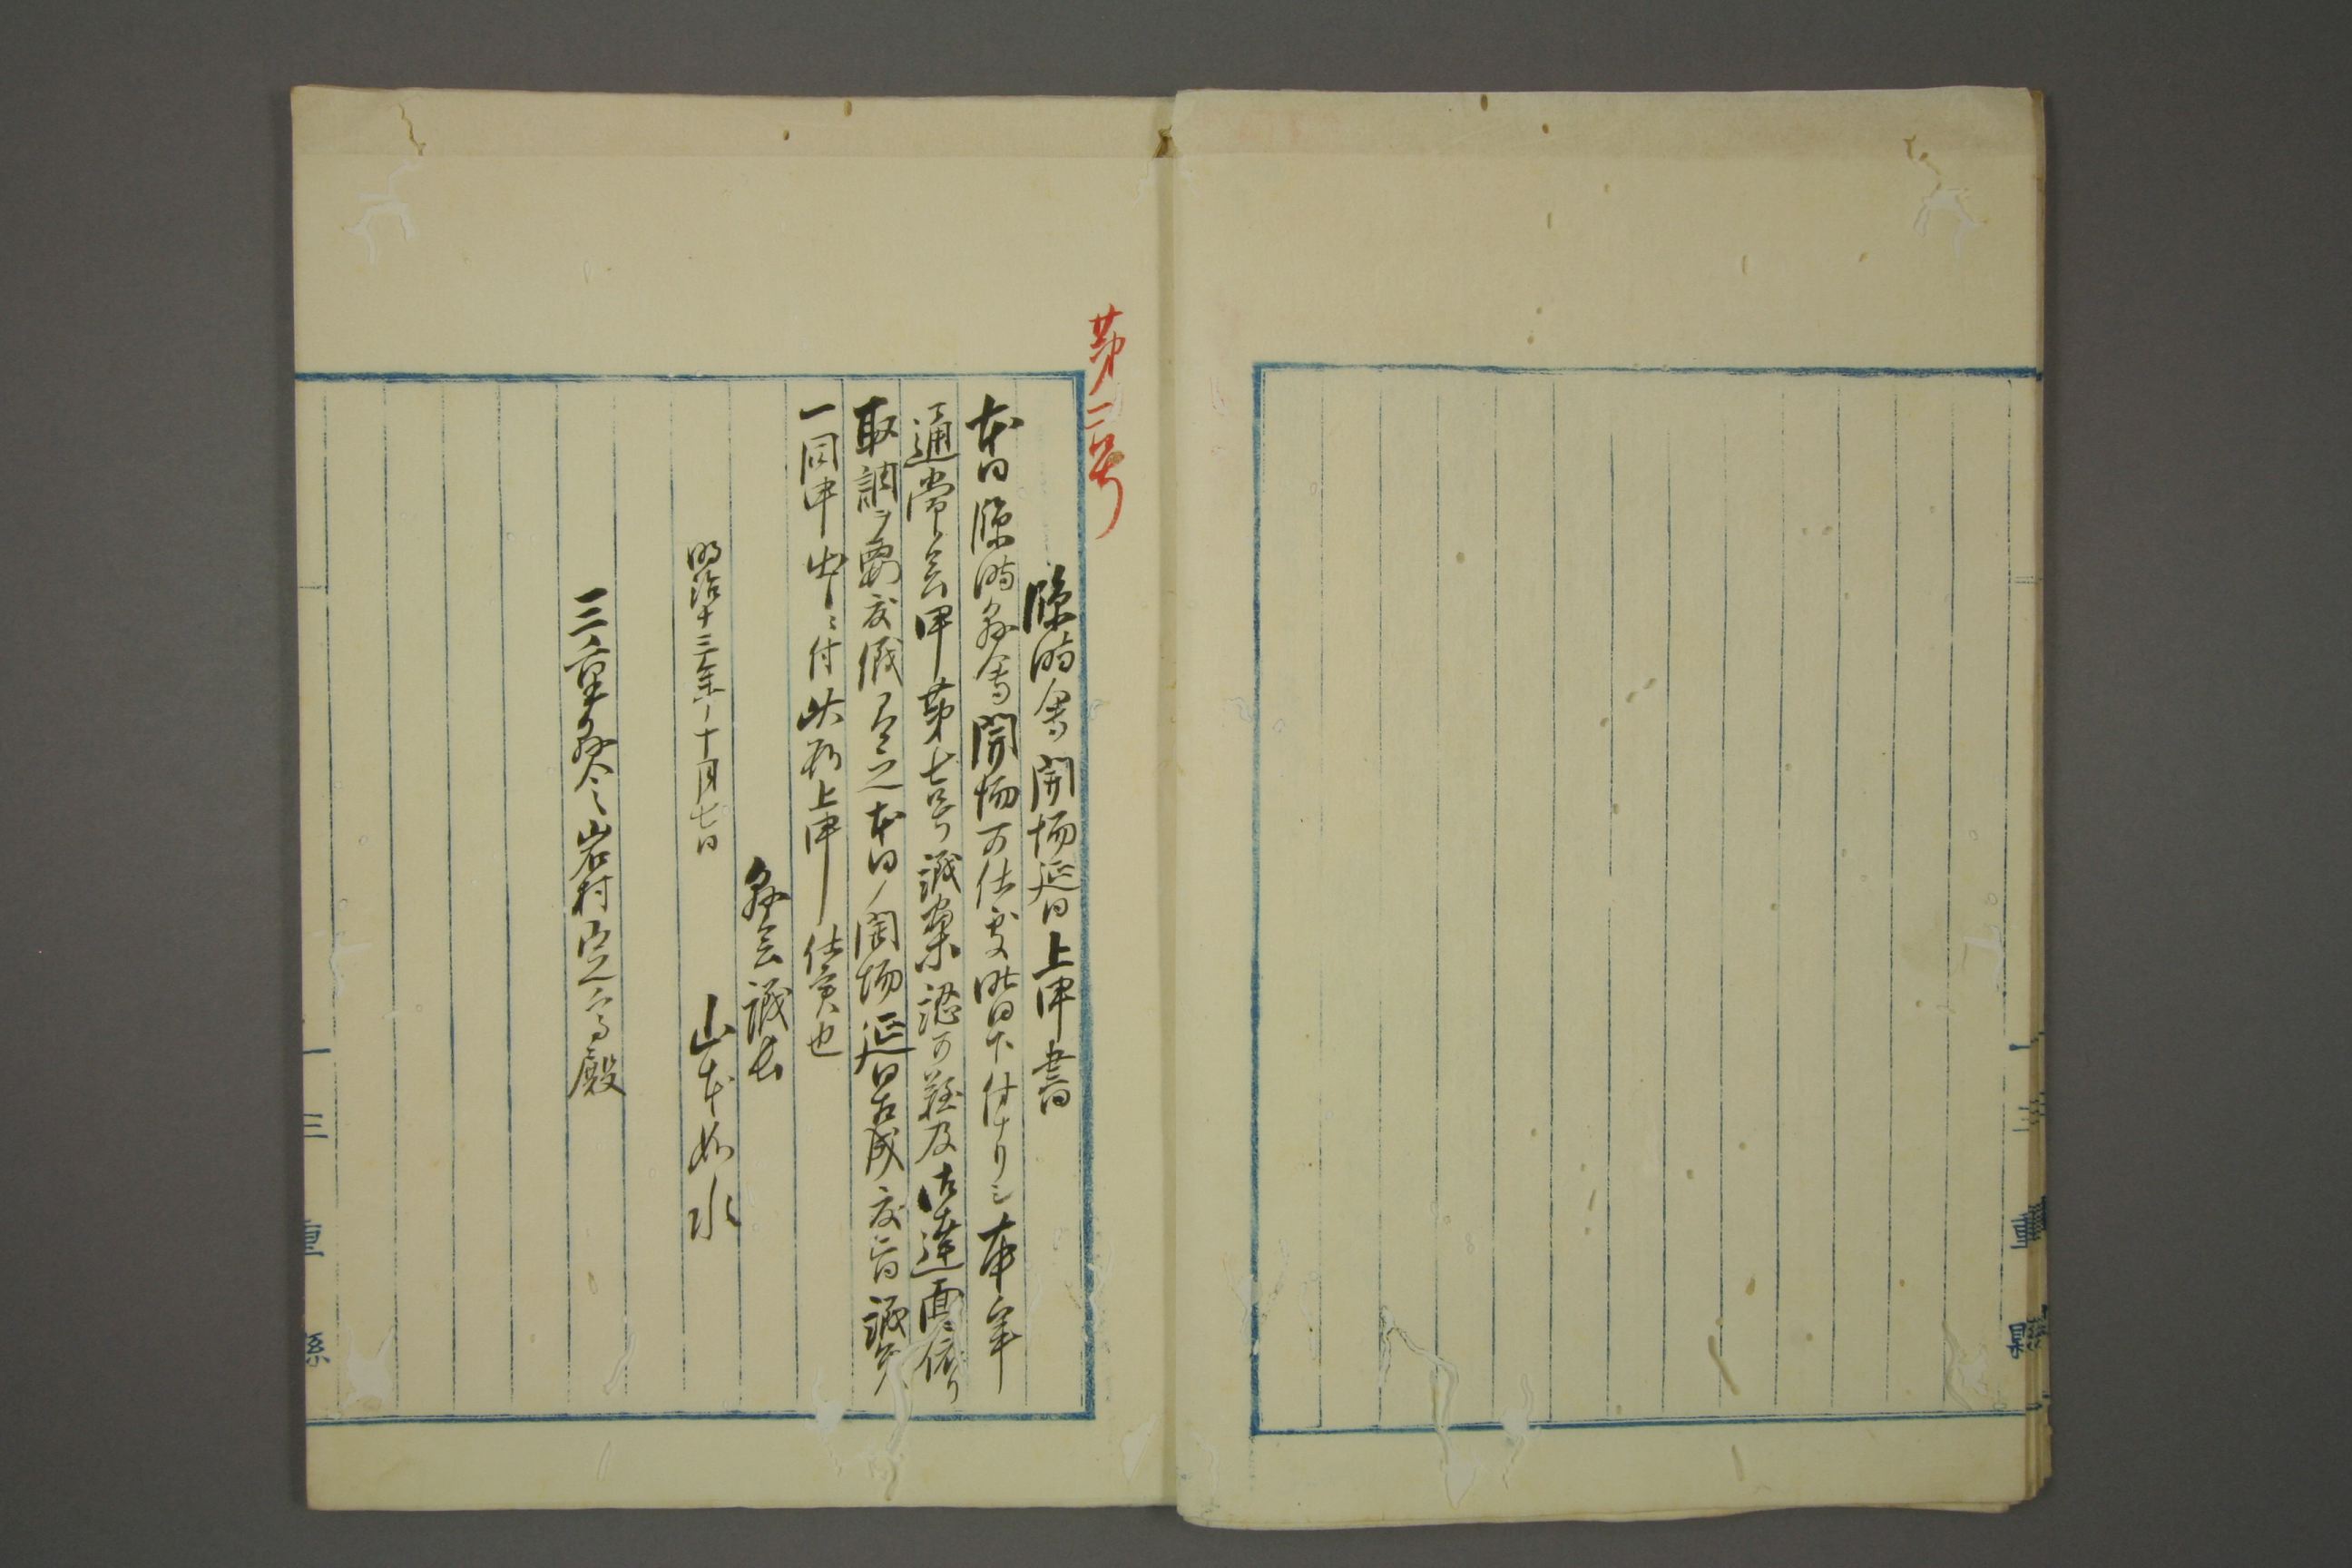 三重縣
第二号
臨時会開場延日上申書
本日臨時縣会開場可仕処昨日下付ナリシ本年
通常会甲第七号議案認可難及御達書ニ依リ
取調ヲ要度儀有之本日ノ開場延日相成度旨議員
一同申出ニ付此段上申仕候也
縣会議長
明治十三年十月七日
山本如水
三重縣令岩村定高殿
三重縣